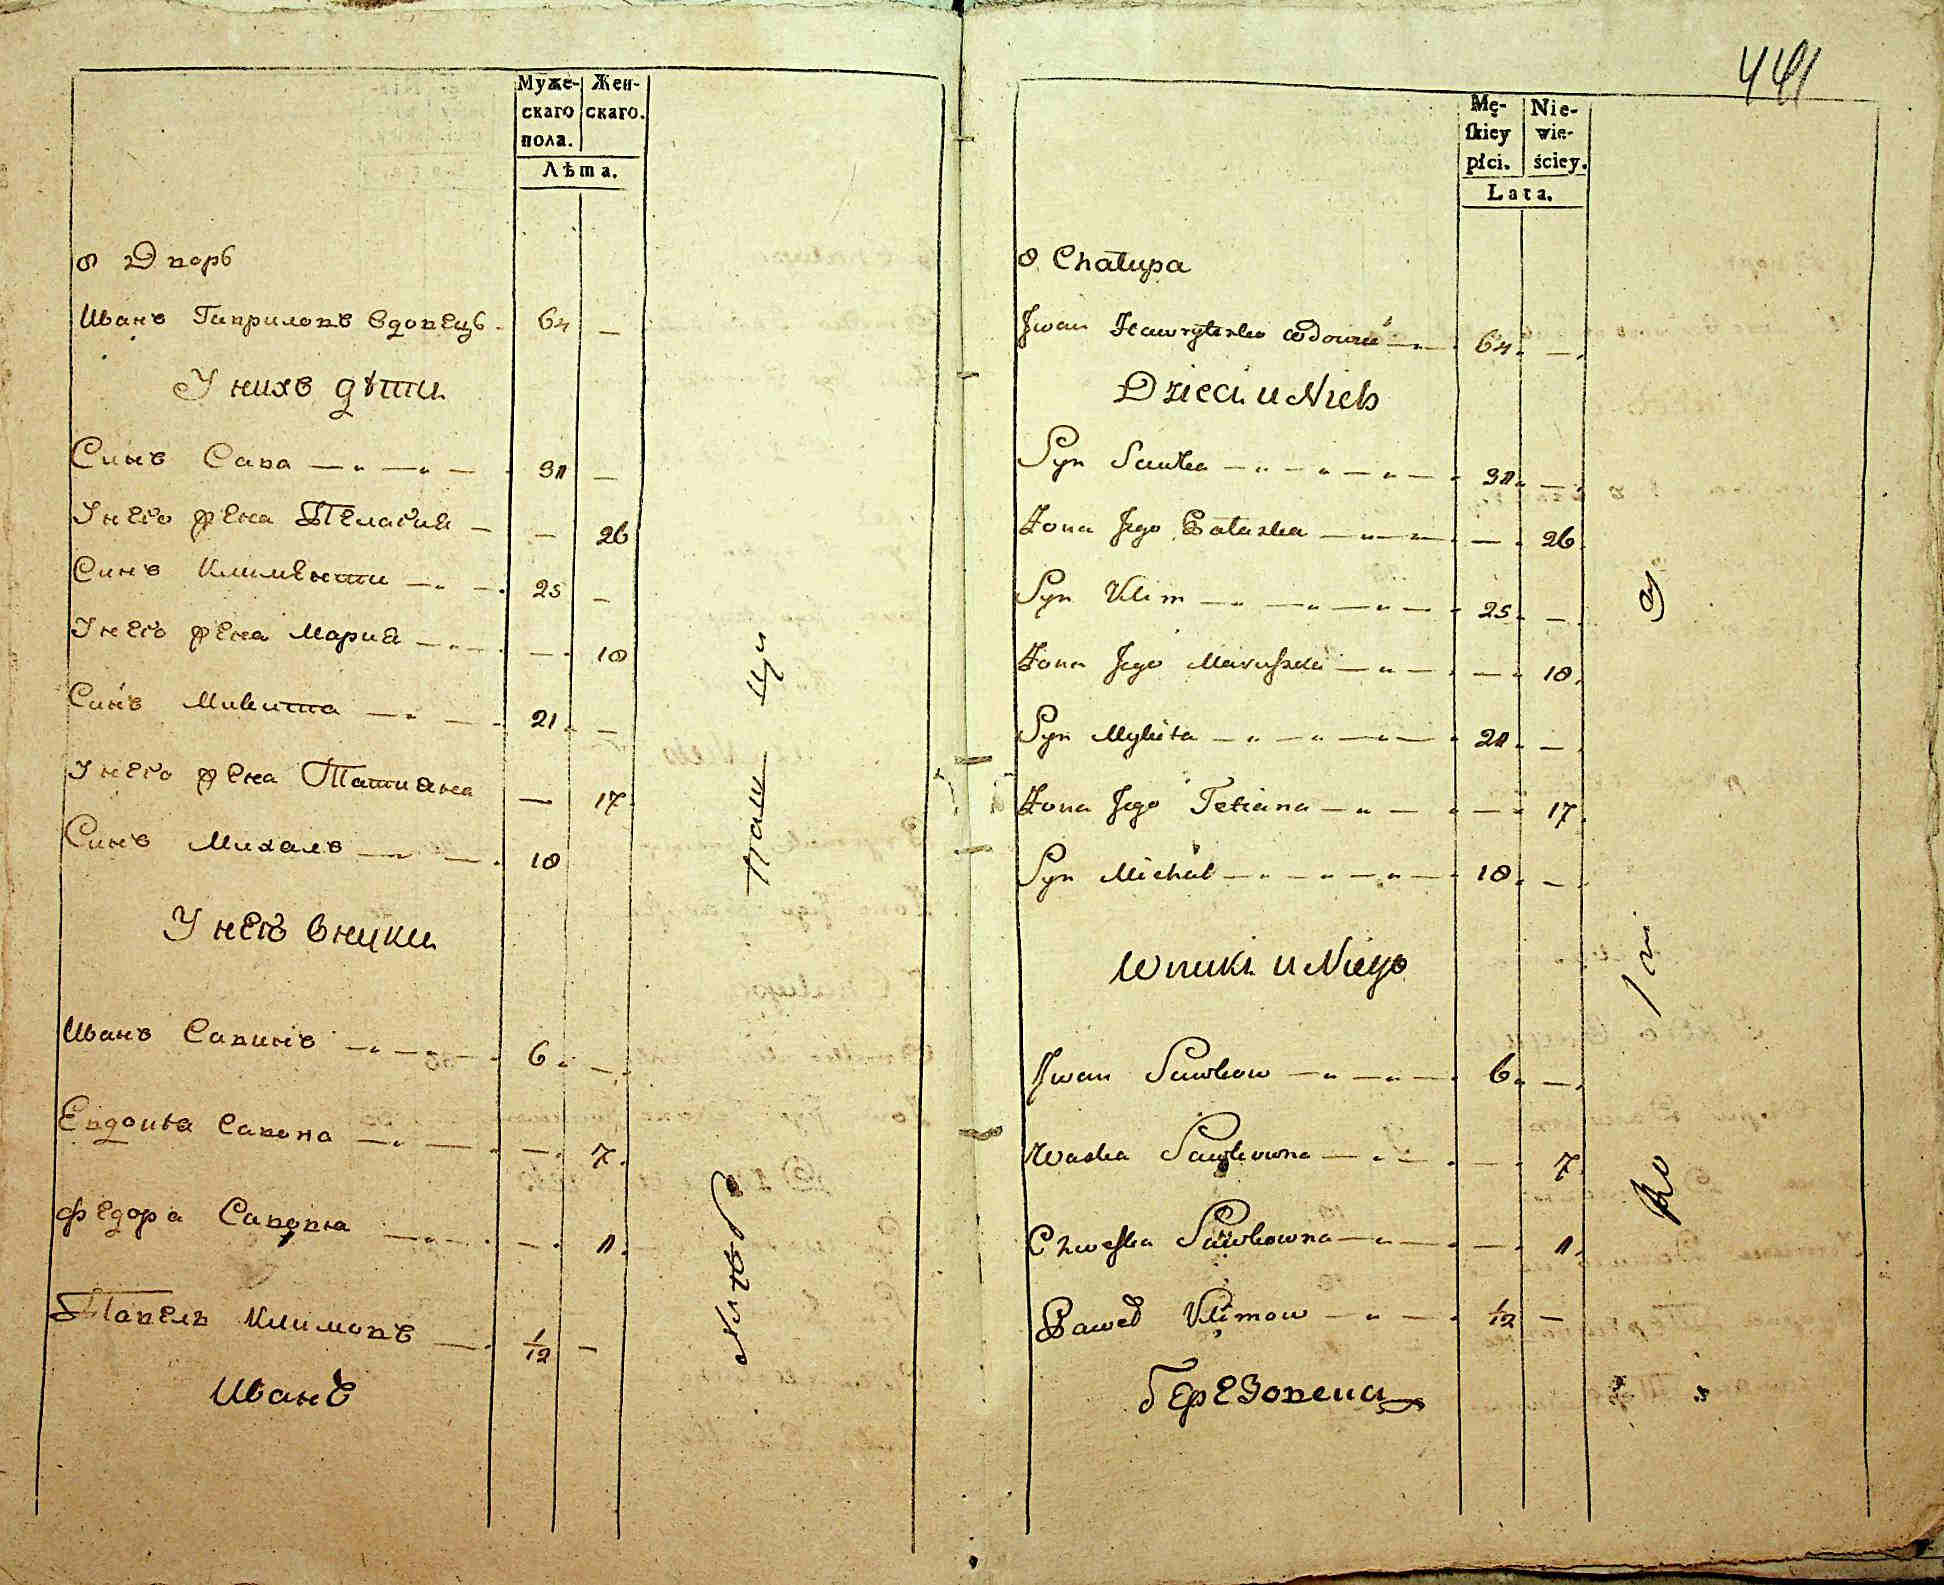 Муже-
скаго
пола.
Жен-
скаго.
Лѣта.
8 Дворъ
Иванъ Гавриловъ вдовецъ - 64 —
У нихъ дѣти
Синъ Сава — „ — „ — 31 —
У него жена Пелагия — — 26
Синъ Климентти — „ — 25 —
У него жена Мария — „ — — 18
Синъ Микитта — „ — 21 —
У него жена Таттияна — 17
Синъ Михалъ — „ — 18
У него внуки
Иванъ Савинъ — „ — „ — 6 —
Евдокъа Савона — „ — — 7
Федора Савовна — „ — — 1
Павелъ Климовъ — 1/12 —
Иванъ
441
Mę-
skiey
płci.
Nie-
wie-
ściey.
Lata.
8 Chałupa
Jwan Hawryłenko Wdowiec — „ — 64 —
Dzieci u Nich
Syn Sawka — „ — „ — „ — 31 —
Żona Jego Pałaszka — „ — — 26
Syn Klim — „ — „ — „ — 25 —
Żona Jego Maruszka — „ — — 18
Syn Mykita — „ — „ — „ — 21 —
Żona Jego Tetiana — „ — — 17
Syn Michał — „ — „ — „ — 18 —
Wnuki u Niego
Jwan Sawkow — „ — „ — 6 —
Waska Sawkowna — „ — — 7
Chweska Sawkowna — „ — — 1
Paweł Klimow — „ — 1/12 —
березовеци